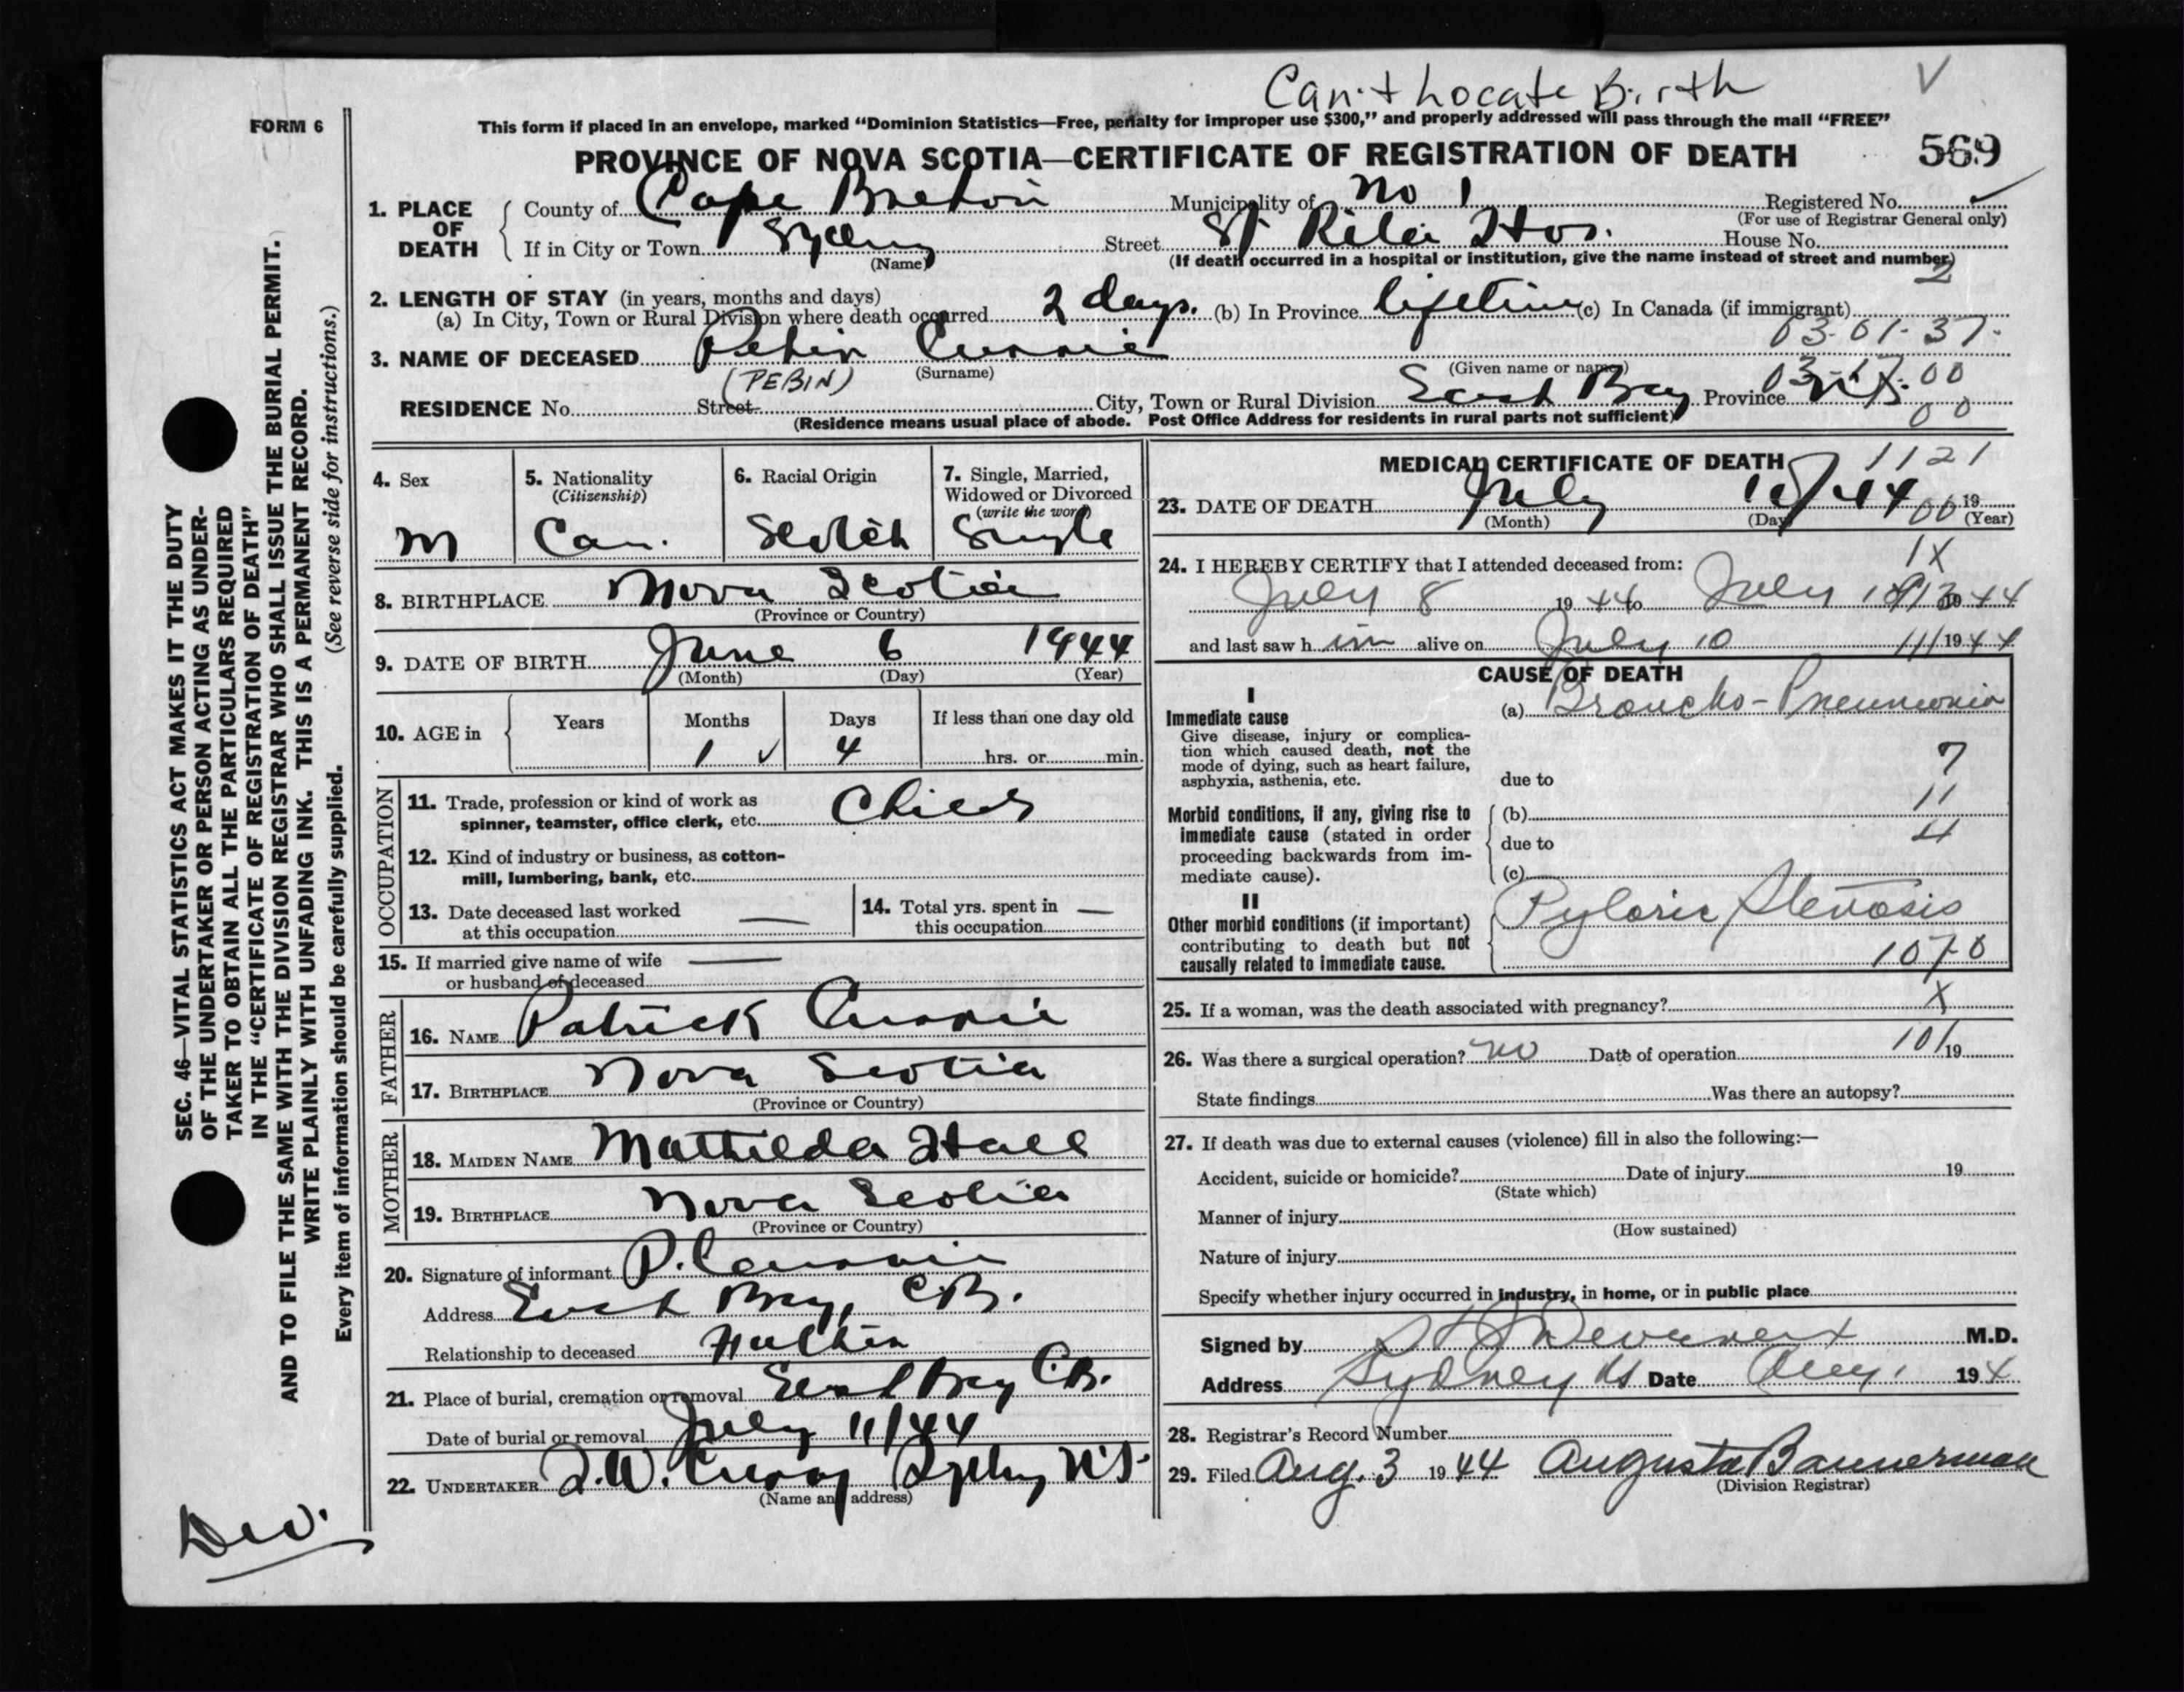 Can't Locate Birth V
FORM 6
This form if placed in an envelope, marked "Dominion Statistics—Free, penalty for improper use $300," and properly addressed will pass through the mail "FREE"
PROVINCE OF NOVA SCOTIA—CERTIFICATE OF REGISTRATION OF DEATH 569
1. PLACE OF DEATH
County of Cape Breton Municipality of No 1 Registered No.
(For use of Registrar General only)
If in City or Town Sydney Street St Rita Hos. House No.
(Name) (If death occurred in a hospital or institution, give the name instead of street and number)
2
2. LENGTH OF STAY (in years, months and days)
(a) In City, Town or Rural Division where death occurred 2 days. (b) In Province lifetime (c) In Canada (if immigrant)
03-01-37-
3. NAME OF DECEASED Pebin Currie
(PEBIN) (Surname) (Given name or names)
03-17-00
RESIDENCE No. Street City, Town or Rural Division East Bay Province N.S.
00
(Residence means usual place of abode. Post Office Address for residents in rural parts not sufficient)
4. Sex
M
5. Nationality
(Citizenship)
Can.
6. Racial Origin
Scotch
7. Single, Married,
Widowed or Divorced
(write the word)
Single
8. BIRTHPLACE Nova Scotia
(Province or Country)
9. DATE OF BIRTH June 6 1944
(Month) (Day) (Year)
10. AGE in Years Months Days If less than one day old
1 ✓ 4 hrs. or min.
OCCUPATION
11. Trade, profession or kind of work as
spinner, teamster, office clerk, etc. Child
12. Kind of industry or business, as cotton-
mill, lumbering, bank, etc.
13. Date deceased last worked
at this occupation —
14. Total yrs. spent in
this occupation —
15. If married give name of wife
or husband of deceased —
FATHER
16. NAME Patrick Currie
17. BIRTHPLACE Nova Scotia
(Province or Country)
MOTHER
18. MAIDEN NAME Mathilda Hall
19. BIRTHPLACE Nova Scotia
(Province or Country)
20. Signature of informant P. Currie
Address East Bay, C.B.
Relationship to deceased Father
21. Place of burial, cremation or removal East Bay C.B.
Date of burial or removal July 11/44
22. UNDERTAKER Sydney N.S.
(Name and address)
MEDICAL CERTIFICATE OF DEATH 1121
23. DATE OF DEATH July 10/44 00 19
(Month) (Day) (Year)
24. I HEREBY CERTIFY that I attended deceased from: 1X
July 8 1944 to July 1944
and last saw him alive on July 10 11/1944
CAUSE OF DEATH
I
Immediate cause
Give disease, injury or complica-
tion which caused death, not the
mode of dying, such as heart failure,
asphyxia, asthenia, etc.
(a) Broncho-Pneumonia
7
due to
Morbid conditions, if any, giving rise to
immediate cause (stated in order
proceeding backwards from im-
mediate cause).
11
(b)
due to 4
(c)
II
Other morbid conditions (if important)
contributing to death but not
causally related to immediate cause.
Pyloric Stenosis
1070
25. If a woman, was the death associated with pregnancy? X
26. Was there a surgical operation? no Date of operation 10/19
State findings Was there an autopsy?
27. If death was due to external causes (violence) fill in also the following:—
Accident, suicide or homicide? Date of injury 19
(State which)
Manner of injury
(How sustained)
Nature of injury
Specify whether injury occurred in industry, in home, or in public place
Signed by M.D.
Address Sydney NS Date Aug. 1 194
28. Registrar's Record Number
29. Filed Aug. 3 1944 Augusta Bannerman
(Division Registrar)
SEC. 46—VITAL STATISTICS ACT MAKES IT THE DUTY
OF THE UNDERTAKER OR PERSON ACTING AS UNDER-
TAKER TO OBTAIN ALL THE PARTICULARS REQUIRED
IN THE "CERTIFICATE OF REGISTRATION OF DEATH"
AND TO FILE THE SAME WITH THE DIVISION REGISTRAR WHO SHALL ISSUE THE BURIAL PERMIT.
WRITE PLAINLY WITH UNFADING INK. THIS IS A PERMANENT RECORD.
(See reverse side for instructions.)
Every item of information should be carefully supplied.